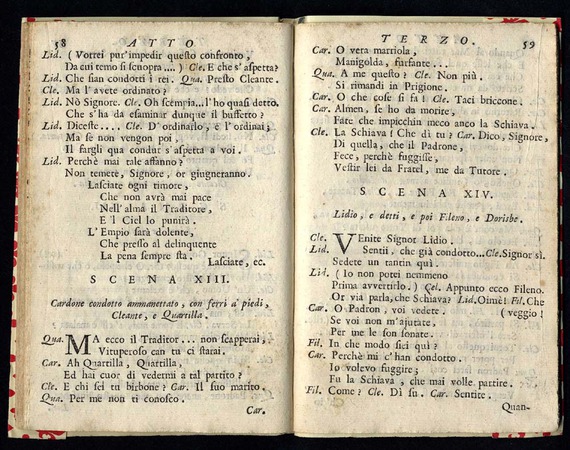 58 ATTO
Lid. ( Vorrei pur'impedir questo confronto,
Da cui temo si scuopra... ) Cle. E che s'aspetta?
Lid. Che sian condotti i rei. Qua. Presto Cleante.
Cle. Ma l'avete ordinato?
Lid. Nò Signore. Cle. Oh scempia...l'ho quasi detto.
Che s'ha da esaminar dunque il buffetto?
Lid. Diceste.... Cle. D'ordinarlo, e l'ordinai;
Ma se non vengon poi,
Il fargli qua condur s'aspetta a voi.
Lid. Perchè mai tale affanno?
Non temete, Signore, or giugneranno.
Lasciate ogni timore,
Che non avrà mai pace
Nell'alma il Traditore,
E 'l Ciel lo punirà.
L'Empio sarà dolente,
Che presso al delinquente
La pena sempre sta.
Lasciate, ec.
SCENA XIII.
Cardone condotto ammanettato, con ferri a' piedi,
Cleante, e Quartilla.
Qua. MA ecco il Traditor... non scapperai,
Vituperoso can tu ci starai.
Car. Ah Quartilla, Quartilla,
Ed hai cuor di vedermi a tal partito?
Cle. E chi sei tu birbone? Car. Il suo marito.
Qua. Per me non ti conosco.
Car.
TERZO. 59
Car. O vera marriola,
Manigolda, furfante...
Qua. A me questo? Cle. Non più.
Si rimandi in Prigione.
Car. O che cose si fa! Cle. Taci briccone.
Car. Almen, se ho da morire,
Fate che impicchin meco anco la Schiava.
Cle. La Schiava! Che dì tu? Car. Dico, Signore,
Di quella, che il Padrone,
Fece, perchè fuggisse,
Vestir lei da Fratel, me da Tutore.
SCENA XIV.
Lidio, e detti, e poi Fileno, e Dorisbe.
Cle. VEnite Signor Lidio.
Lid. Sentii, che già condotto...Cle.Signor sì.
Sedete un tantin quì.
Lid. ( Io non potei nemmeno
Prima avvertirlo. ) Cel. Appunto ecco Fileno.
Or via parla,che Schiava? Lid.Oimè! Fil.Che
Car. O Padron, voi vedete. ( veggio!
Se voi non m'ajutate,
Per me le son sonate.
Fil. In che modo sei quì?
Car. Perchè mi c'han condotto.
Io volevo fuggire;
Fu la Schiava, che mai volle partire.
Fil. Come? Cle. Dì su. Car. Sentite.
Quan-